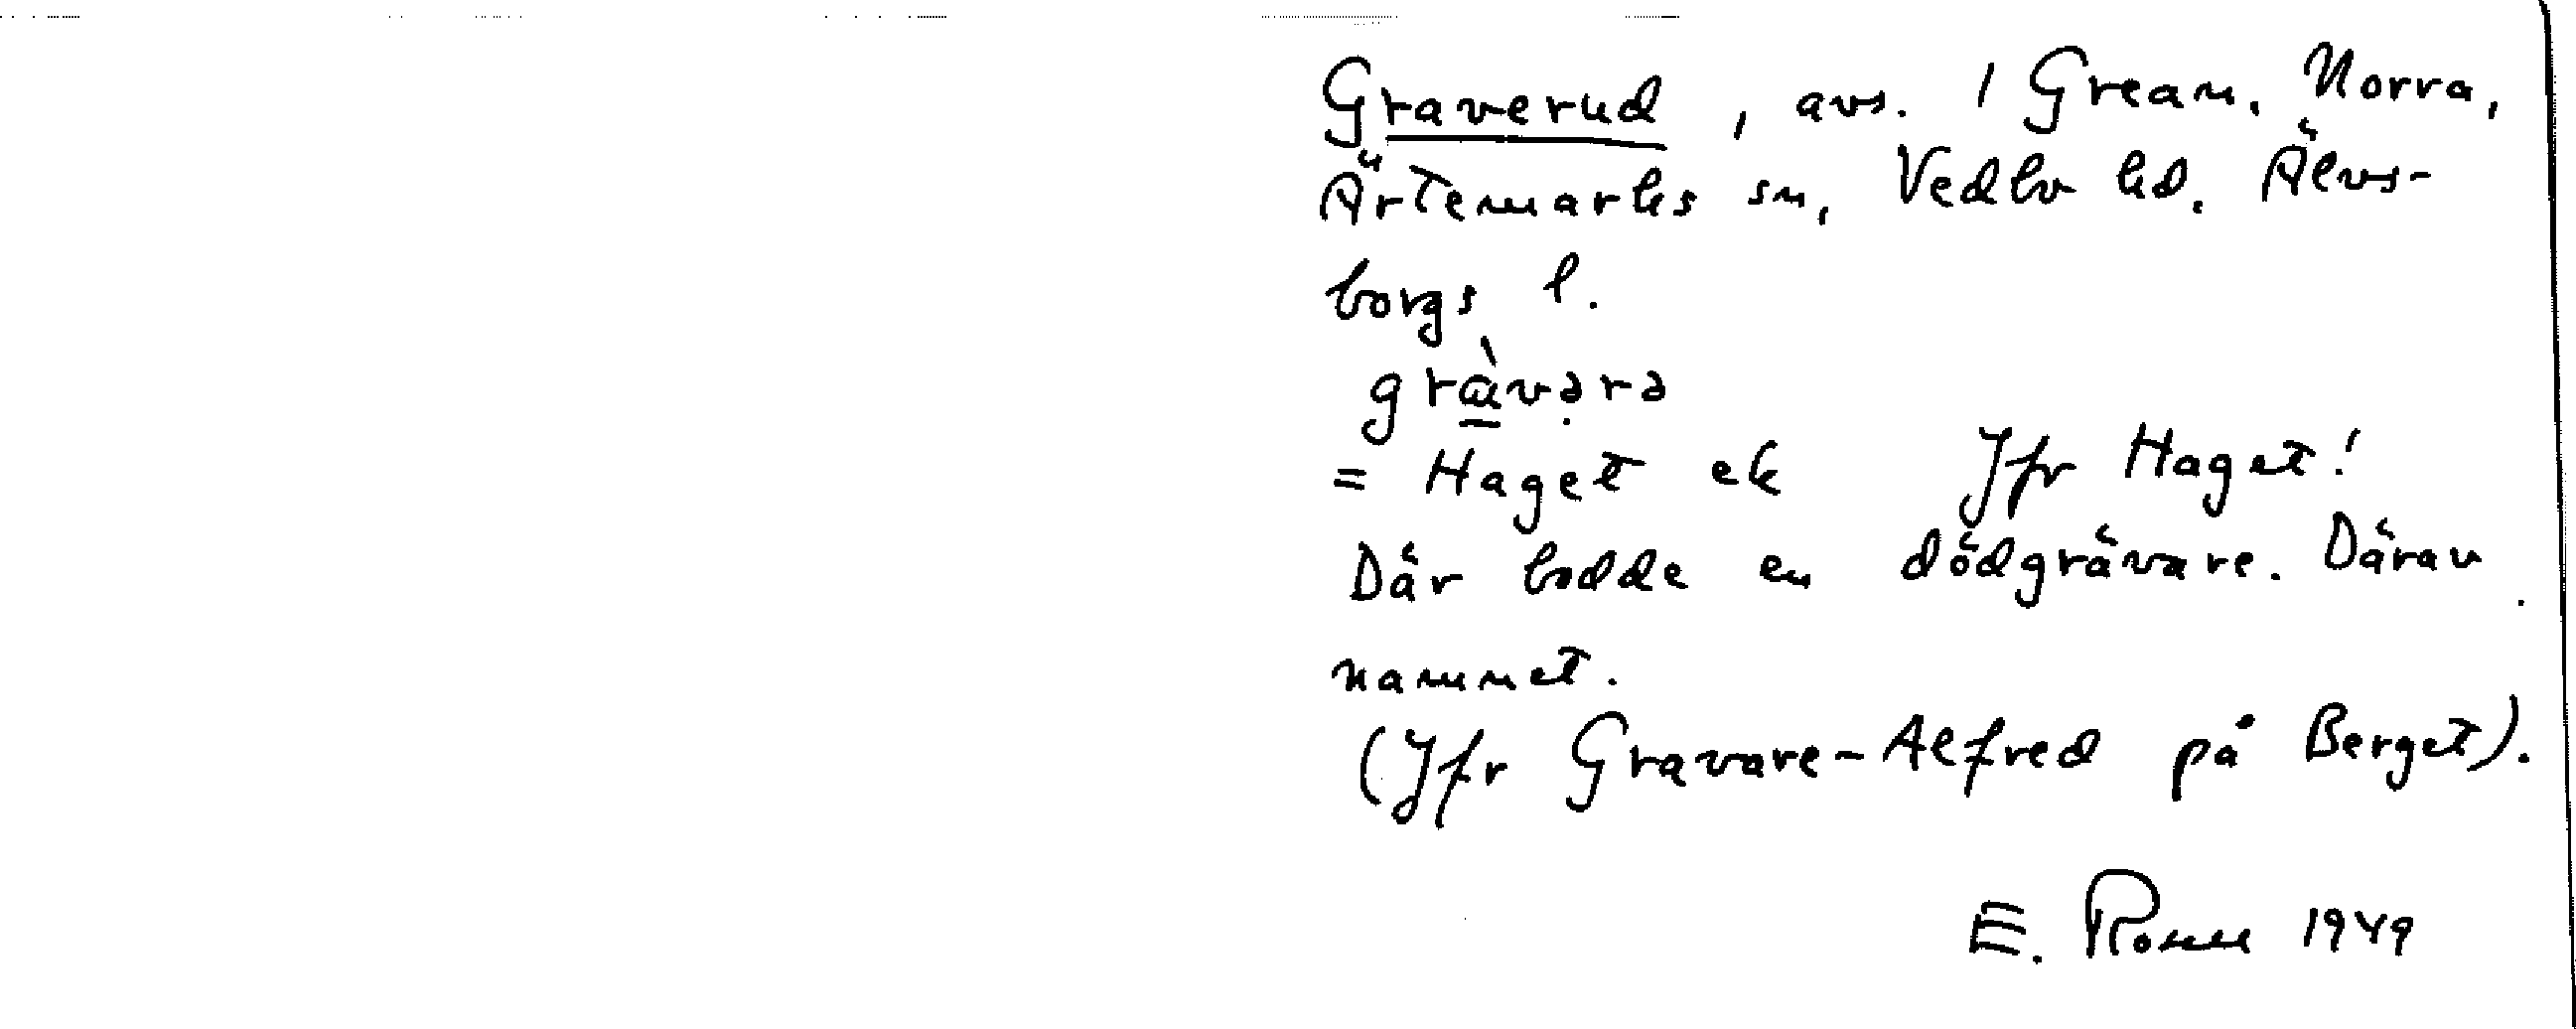 Graverud, avs. / Grean, Norra,
Ärtemarks sn, Vedbo hd. Älvs-
borgs l.
gràvərə
= Haget ek Jfr Haget!
Där bodde en dödgrävare. Därav
namnet.
(Jfr Gravare-Alfred på Berget).
E. 1949